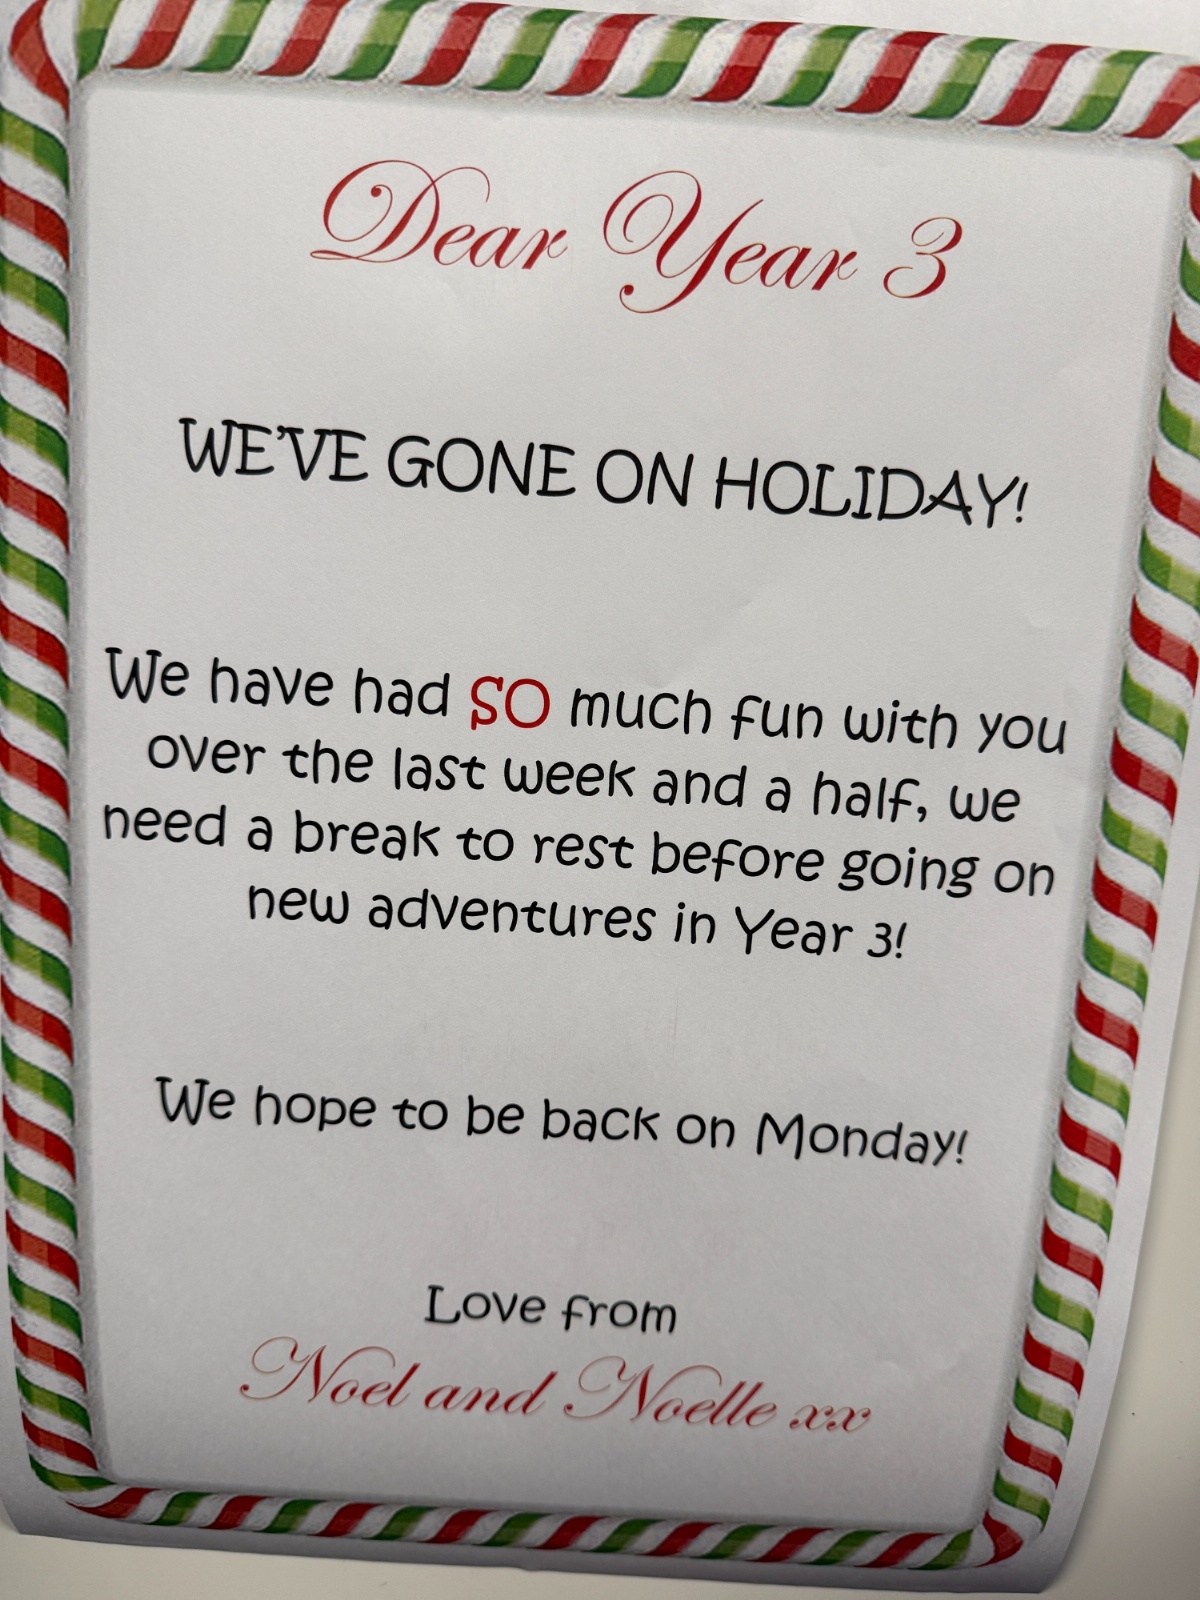 Dear Year 3
WE'VE GONE ON HOLIDAY!
We have had SO much fun with you
over the last week and a half, we
need a break to rest before going on
new adventures in Year 3!
We hope to be back on Monday!
Love from
Noel and Noelle xx